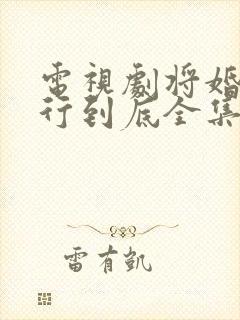 電視劇將婚
行到底全集
雷有凱